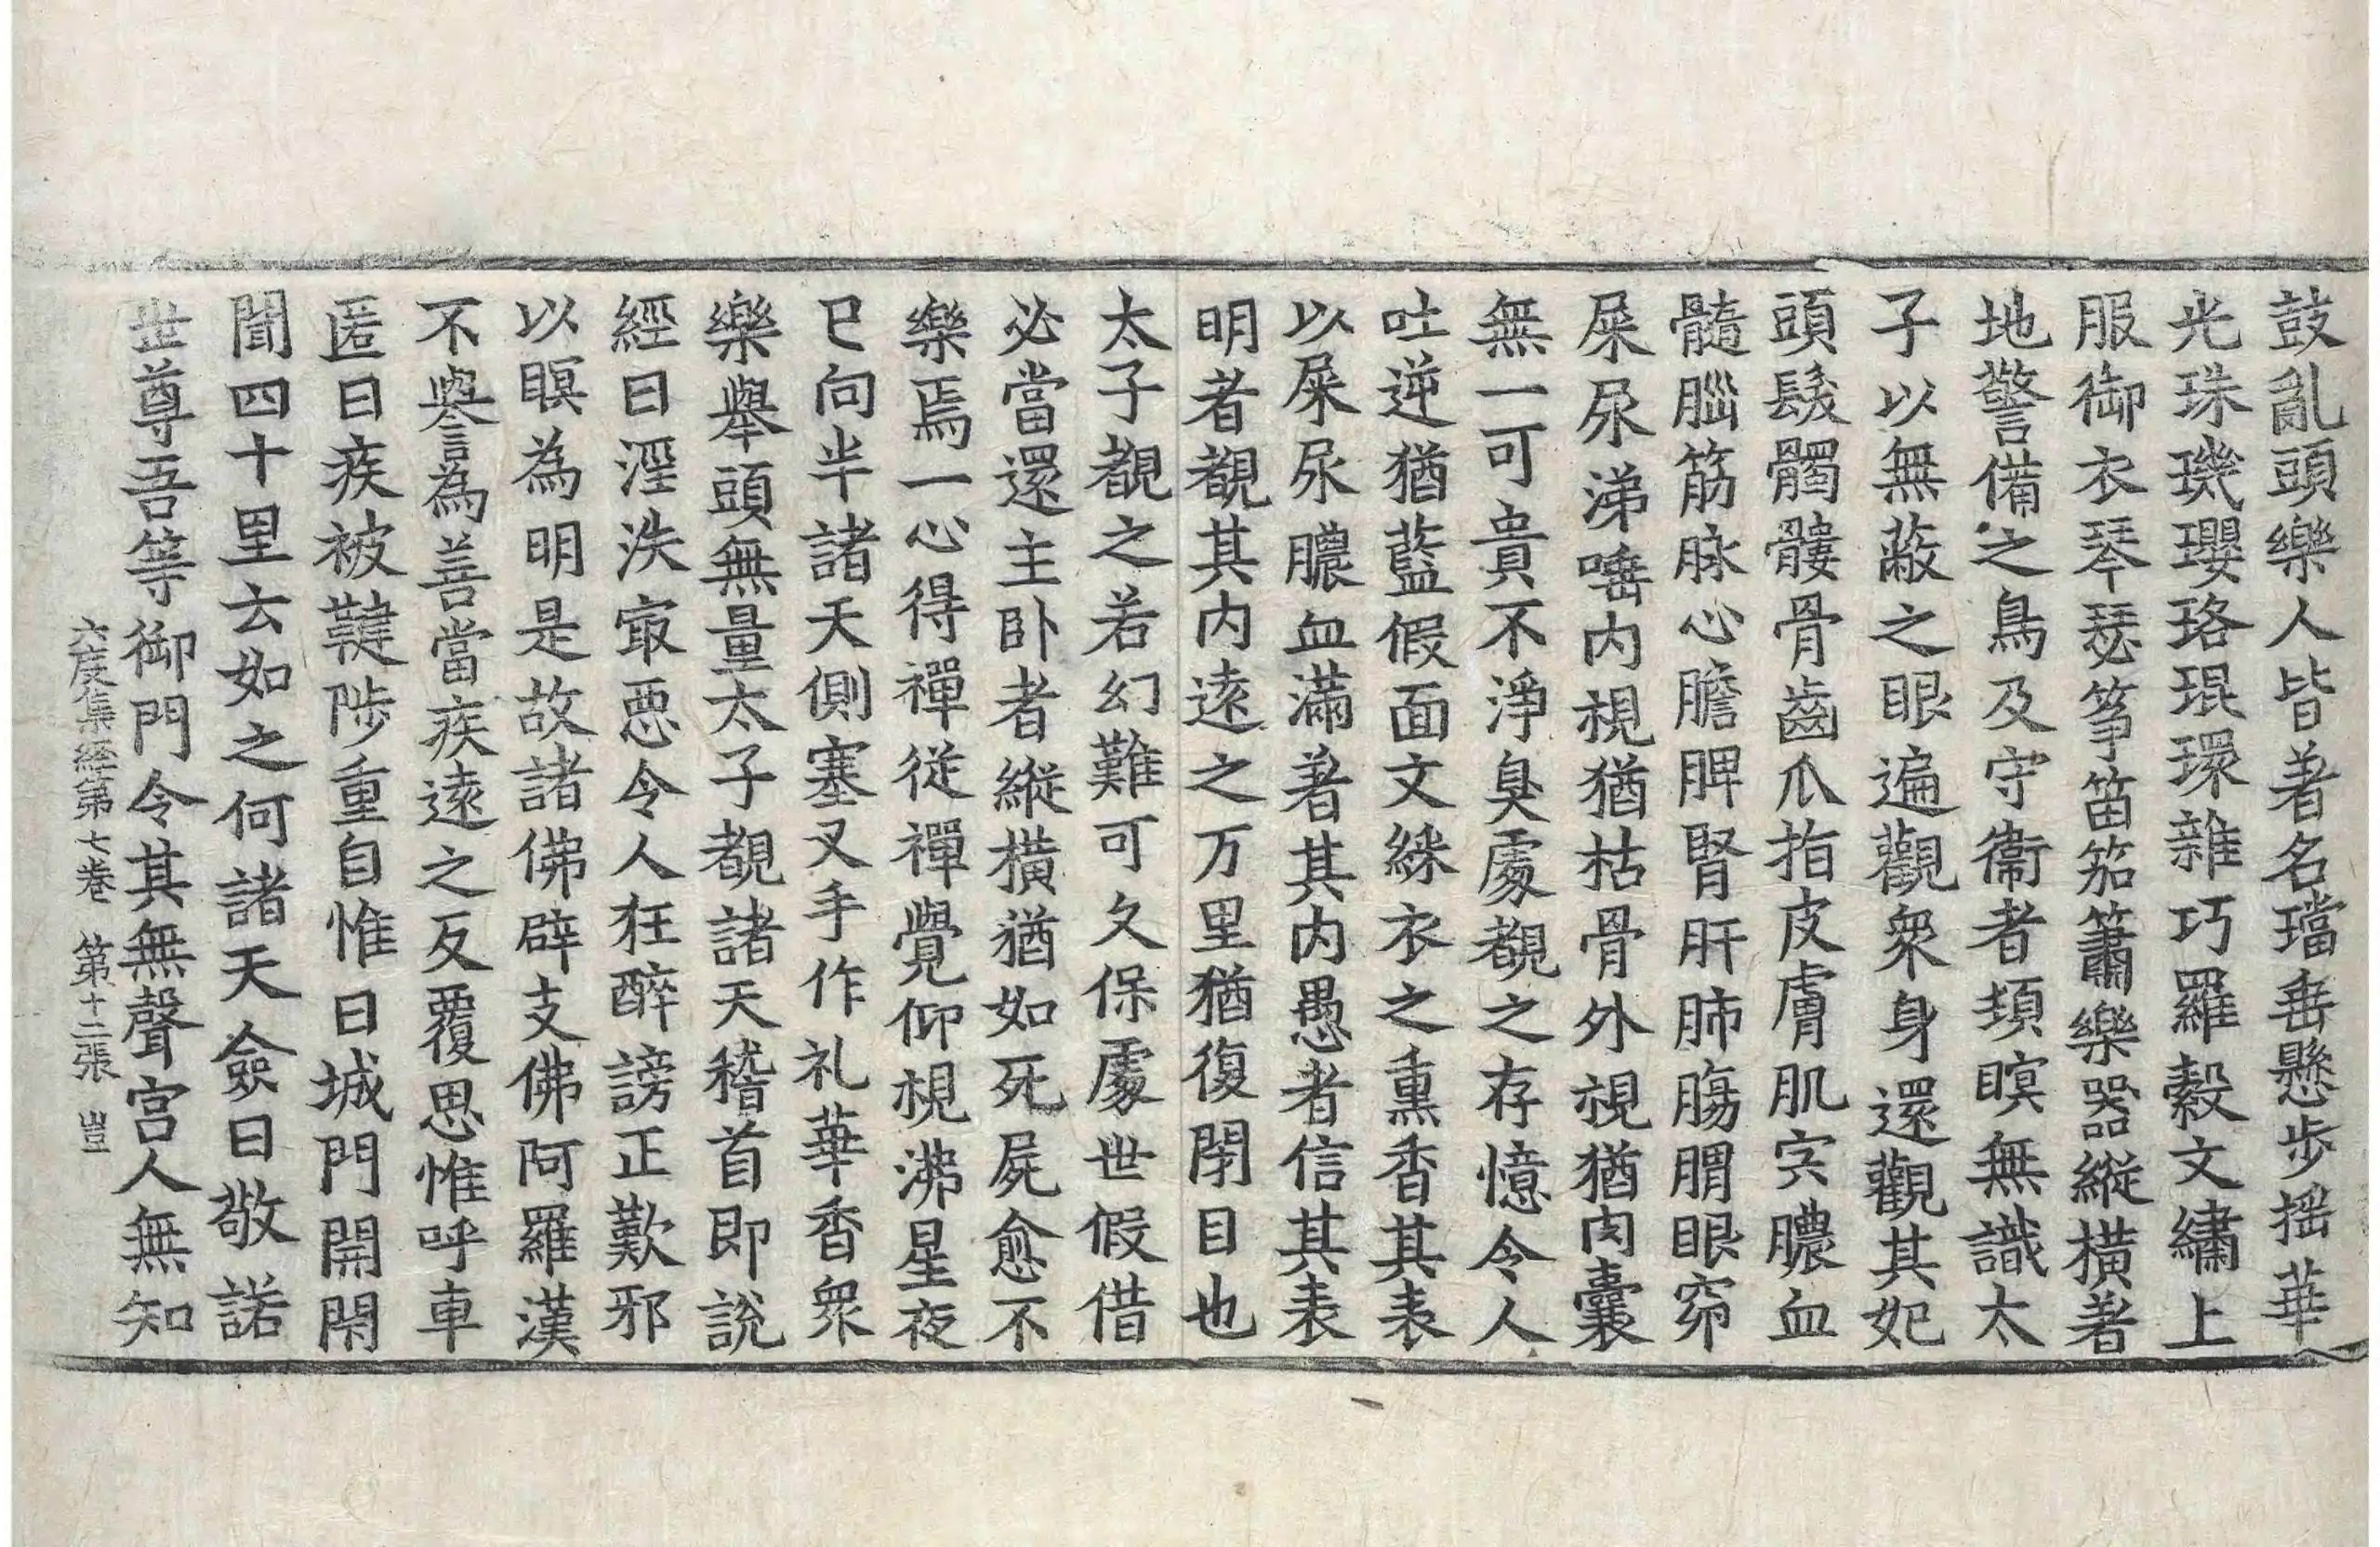 鼓亂頭樂人皆著名璫垂懸步揺華
光珠璣瓔珞琨環雜巧羅縠文繡上
服御衣琴瑟筝笛笳簫樂器縱橫著
地警備之鳥及守衞者頓瞑無識太
子以無蔽之眼遍觀衆身還觀其妃
頭髮髑髏骨齒爪指皮膚肌宍膿血
髓腦筋脉心膽脾腎肝肺腸胃眼窌
屎尿涕唾内視猶枯骨外視猶肉囊
無一可貴不淨臭處覩之存憶令人
吐逆猶藍假面文綵衣之熏香其表
以屎尿膿血滿著其内愚者信其表
明者覩其内遠之万里猶復閉目也
太子覩之若幻難可久保處世假借
必當還主卧者縱橫猶如死屍愈不
樂焉一心得禪從禪覺仰視沸星夜
已向半諸天側塞叉手作礼華香衆
樂舉頭無量太子覩諸天稽首即說
經曰淫泆冣惡令人狂醉謗正歎邪
以瞑為明是故諸佛辟支佛阿羅漢
不譽為善當疾遠之反覆思惟呼車
匿曰疾被鞬陟重自惟曰城門開閉
聞四十里云如之何諸天僉曰敬諾
世尊吾等御門令其無聲宫人無知
六度集經第七卷 第十二張 豈